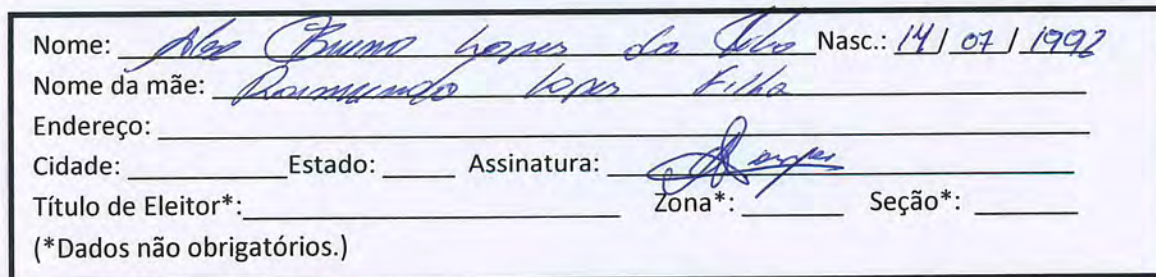 Nome: Alex Bruno Lopes da Silva Nasc.: 14/07/1992
Nome da mãe: Raimunda Lopes Filha
Endereço:
Cidade: Estado: Assinatura:
Título de Eleitor*: Zona*: Seção*:
(*Dados não obrigatórios.)